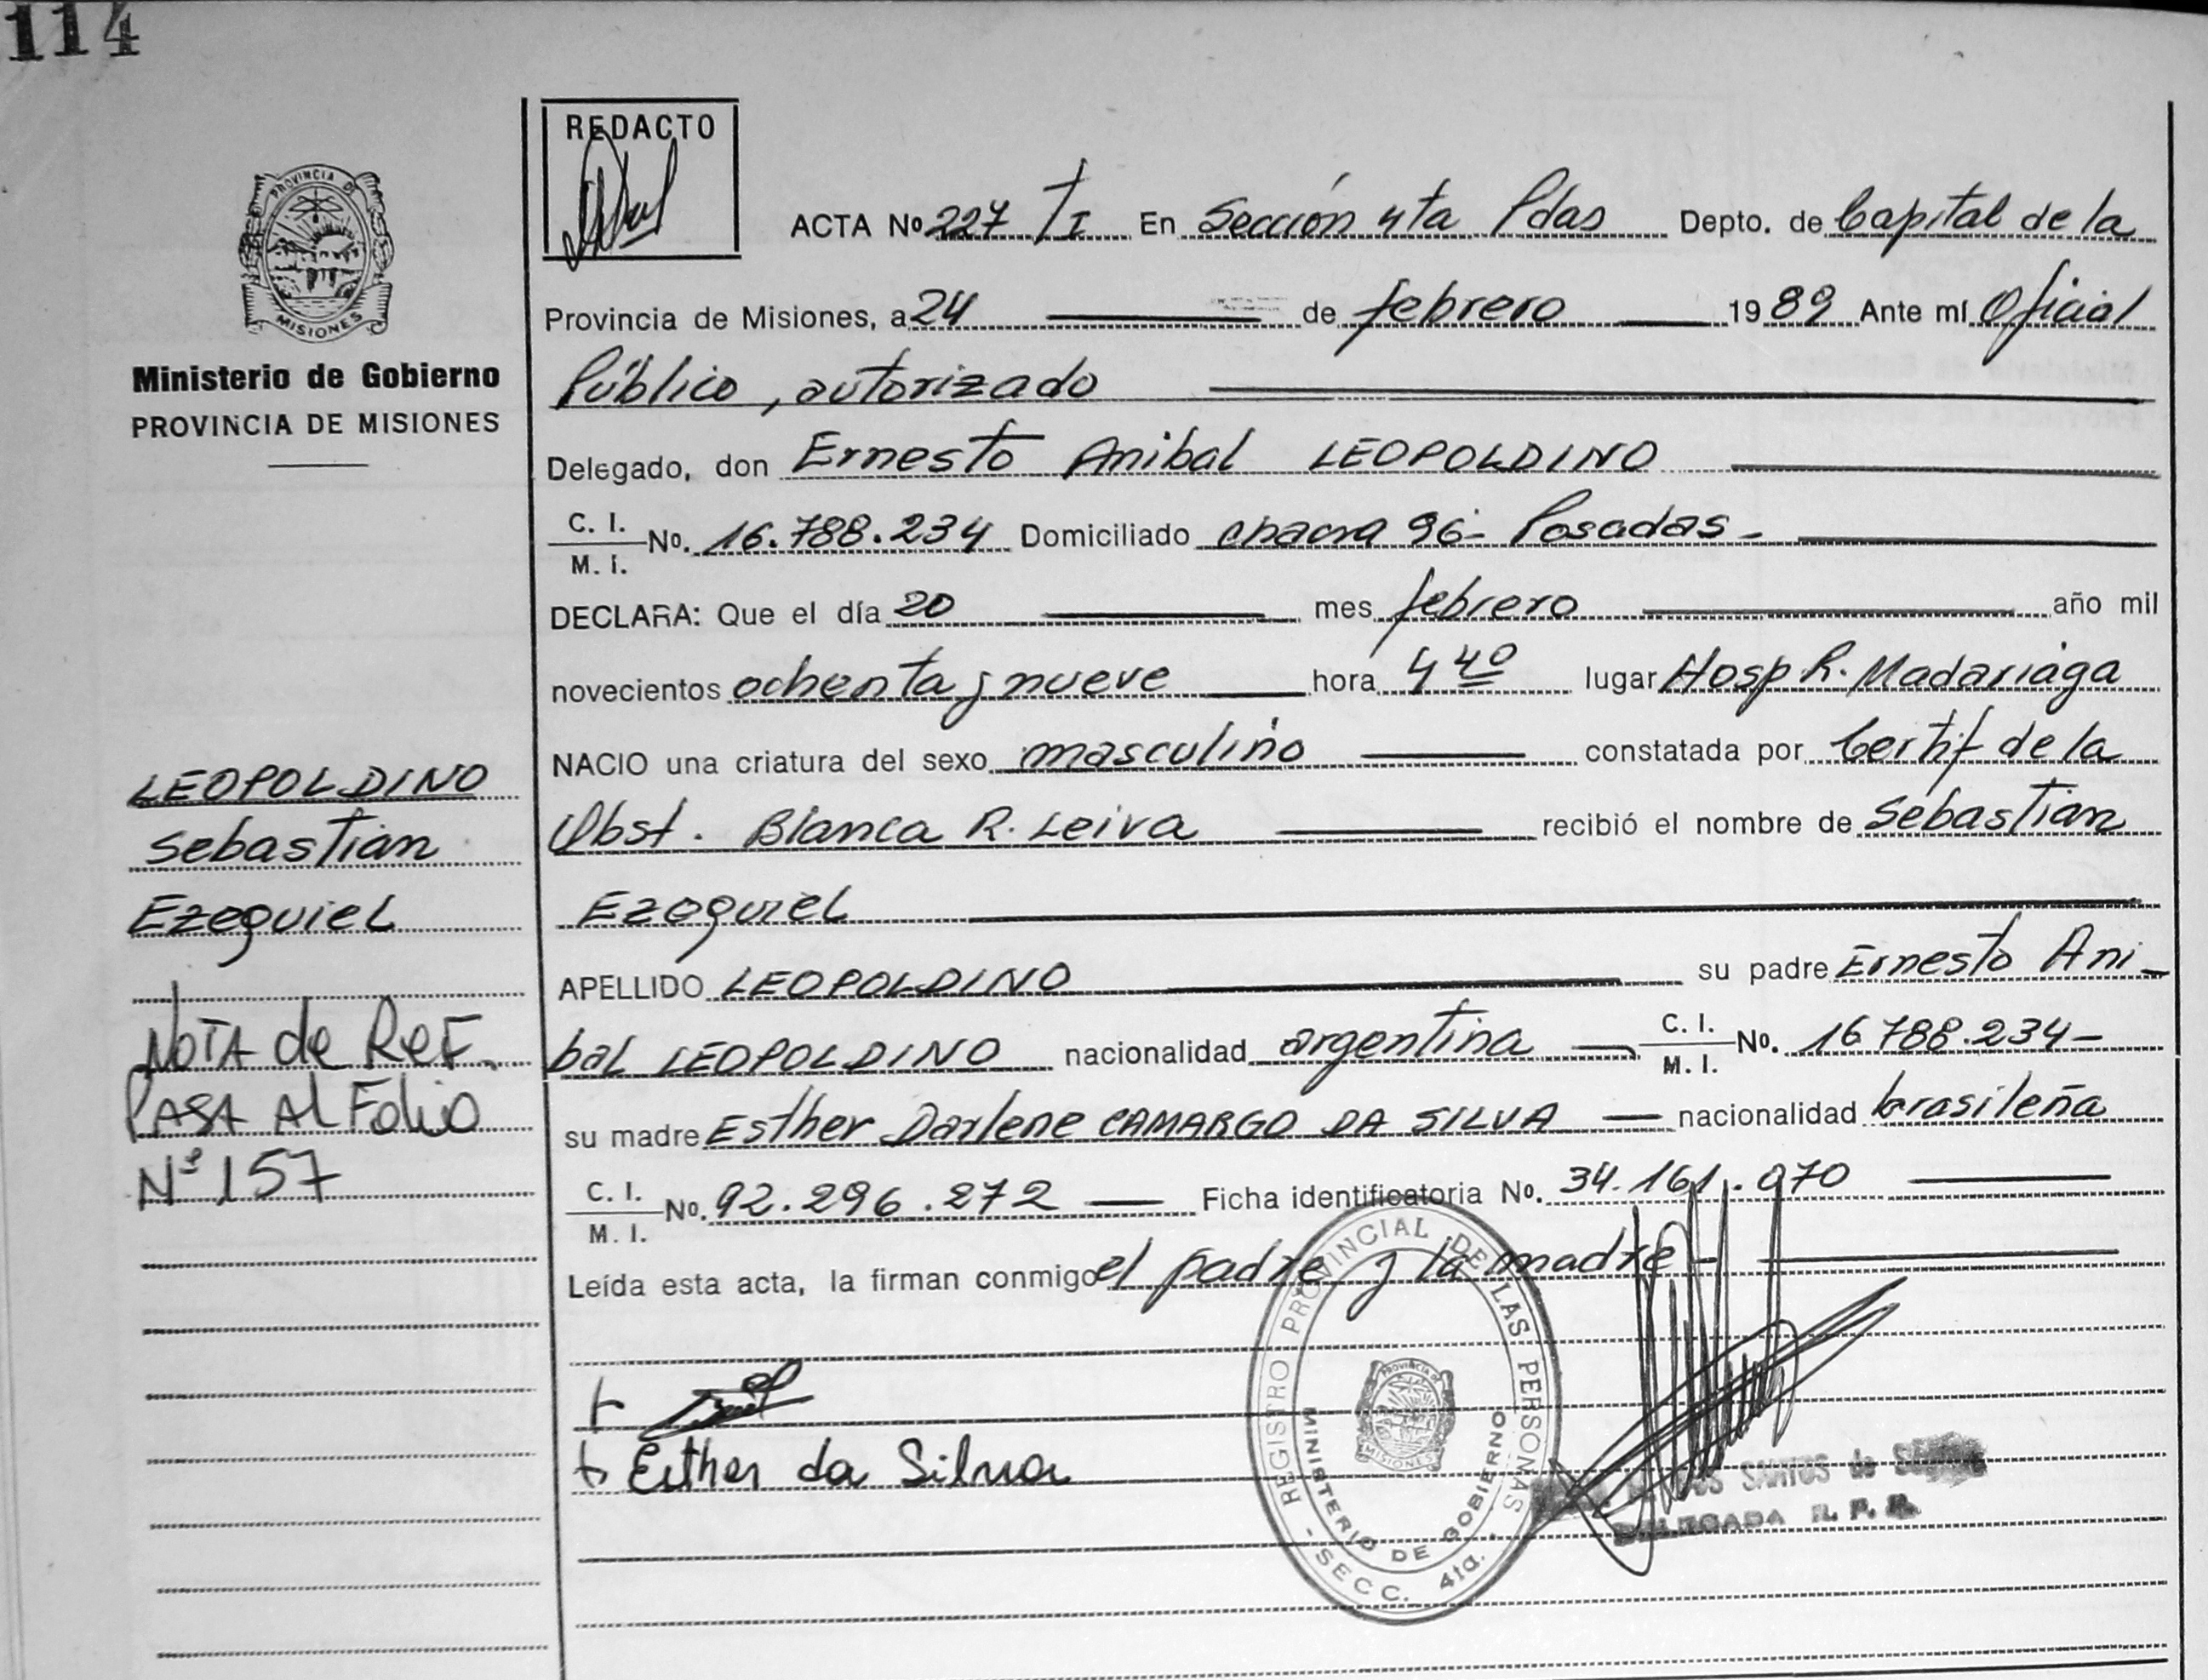 114
REDACTO
PROVINCIA DE
MISIONES
Ministerio de Gobierno
PROVINCIA DE MISIONES
ACTA Nº 227 T/I En Sección 4ta Pdas Depto. de Capital de la
Provincia de Misiones, a 24 de febrero 1989 Ante mí Oficial
Público, autorizado
Delegado, don Ernesto Anibal LEOPOLDINO
C. I.
M. I. Nº. 16.788.234 Domiciliado chacra 96- Posadas-
DECLARA: Que el día 20 mes febrero año mil
novecientos ochenta y nueve hora 4 40 lugar Hosp R. Madariaga
NACIO una criatura del sexo masculino constatada por Certif de la
Obst. Blanca R. Leiva recibió el nombre de Sebastian
Ezequiel
APELLIDO LEOPOLDINO su padre Ernesto Ani-
bal LEOPOLDINO nacionalidad argentina C. I.
M. I. Nº. 16 788.234-
su madre Esther Darlene CAMARGO DA SILVA nacionalidad brasileña
C. I.
M. I. Nº. 92.296.272 Ficha identificatoria Nº. 34.161.070
Leída esta acta, la firman conmigo el padre y la madre-
LEOPOLDINO
Sebastian
Ezequiel
NOTA de REF.
PASA Al Folio
Nº 157
Esther da Silva
REGISTRO PROVINCIAL DE LAS PERSONAS
MINISTERIO DE GOBIERNO
PROVINCIA DE
MISIONES
- SECC. 4ta. -
SANTOS de
DELEGADA R. P. P.